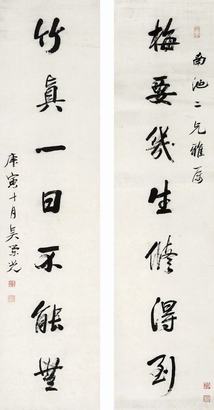 南池二兄雅属
梅要幾生脩得到
竹真一日不能無
庚寅十月吳荣光